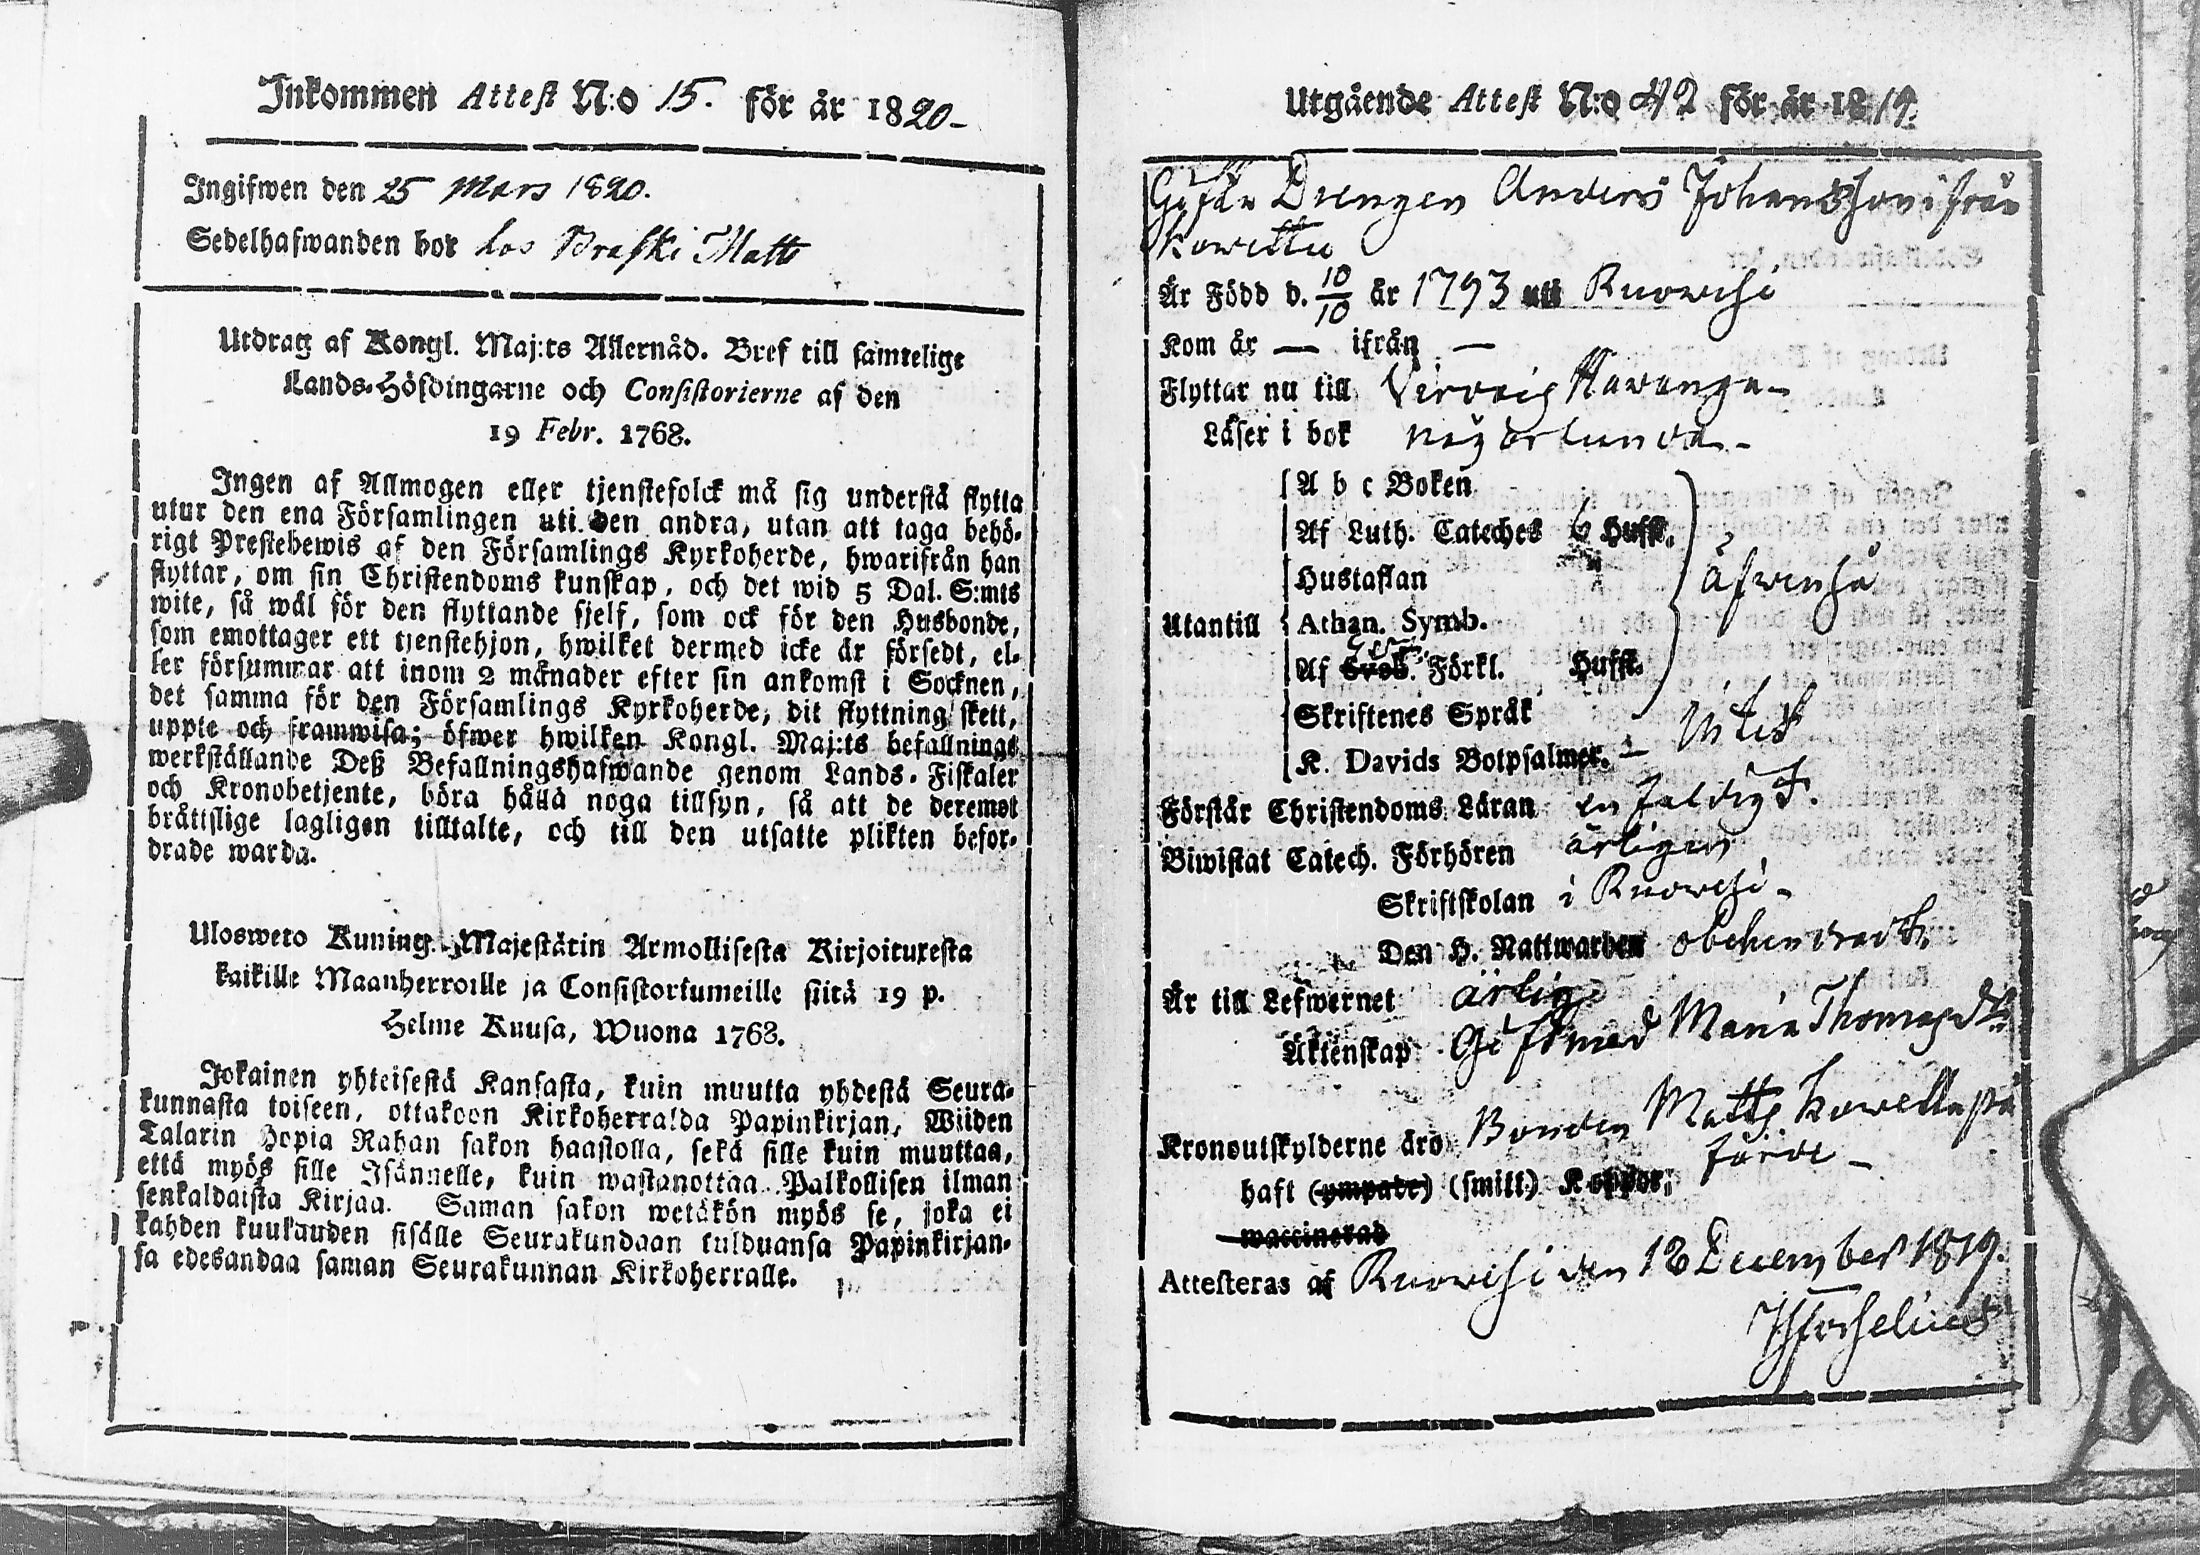 Inkommen Attest N:o 15. för år 1820-
Ingifwen den 25 Mars 1820.
Sedelhafwanden bor hos Braski Matts
Utdrag af Kongl. Maj:ts Allernåd. Bref till samtelige
Lands-Höfdingarne och Consistorierne af den
19 Febr. 1768.
Ingen af Allmogen eller tjenstefolck må sig understå flytta
utur den ena Församlingen uti den andra, utan att taga behö-
rigt Prestebewis af den Församlings Kyrkoherde, hwarifrån han
flyttar, om sin Christendoms kunskap, och det wid 5 Dal. S:mts
wite, så wäl för den flyttande sjelf, som ock för den Husbonde,
som emottager ett tjenstehjon, hwilket dermed icke är försedt, el-
ler försummar att inom 2 månader efter sin ankomst i Socknen,
det samma för den Församlings Kyrkoherde, dit flyttning skett,
uppte och framwisa; öfwer hwilken Kongl. Maj:ts befallnings
werkställande Deß Befallningshafwande genom Lands-Fiskaler
och Kronobetjente, böra hålla noga tillsyn, så att de deremot
bråttslige lagligen tilltalte, och till den utsatte plikten befor-
drade warda.
Ulosweto Kuning. Majestätin Armollisesta Kirjoituxesta
kaikille Maanherroille ja Consistoriumeille siitä 19 p.
Helme Kuusa, Wuona 1768.
Jokainen yhteisestä Kansasta, kuin muutta yhdestä Seura-
kunnasta toiseen, ottakoon Kirkoherralda Papinkirjan, Wiiden
Talarin Hopia Rahan sakon haastolla, sekä sille kuin muuttaa,
että myös sille Isännelle, kuin wastanottaa Palkollisen ilman
senkaldaista Kirjaa. Saman sakon wetäkön myös se, joka ei
kahden kuukauden sisälle Seurakundaan tulduansa Papinkirjan-
sa edesandaa saman Seurakunnan Kirkoherralle.
Utgående Attest N:o 42 för år 1819.
Gifta Drengen Anders Johansson ifrån
Kowella
Är Född d. 10/10 år 1793 uti Ruowesi
Kom år — ifrån —
Flyttar nu till Virdois Hawanga-
Läser i bok nöjorlunda-
A b c Boken
Af Luth. Cateches 6 Hufst.
Hustaflan
äfwenså
Utantill Athan. Symb.
Af Sveb. Förkl. Hufst.
Skriftenes Språk
K. Davids Botpsalmer. — Intet
Förstår Christendoms Läran enfaldigt.
Biwistat Catech. Förhören årligen
Skriftskolan i Ruowesi-
Den H. Nattwarden obehindradt.
Är till Lefwernet ärlig
Äktenskap Gift med Maria Thomasdr
Kronoutskylderne äro Bonden Matts Kowella på
förde —
haft (ympade) (smitt) Koppor,
waccinerad
Attesteras af Ruowesi den 18 December 1819.